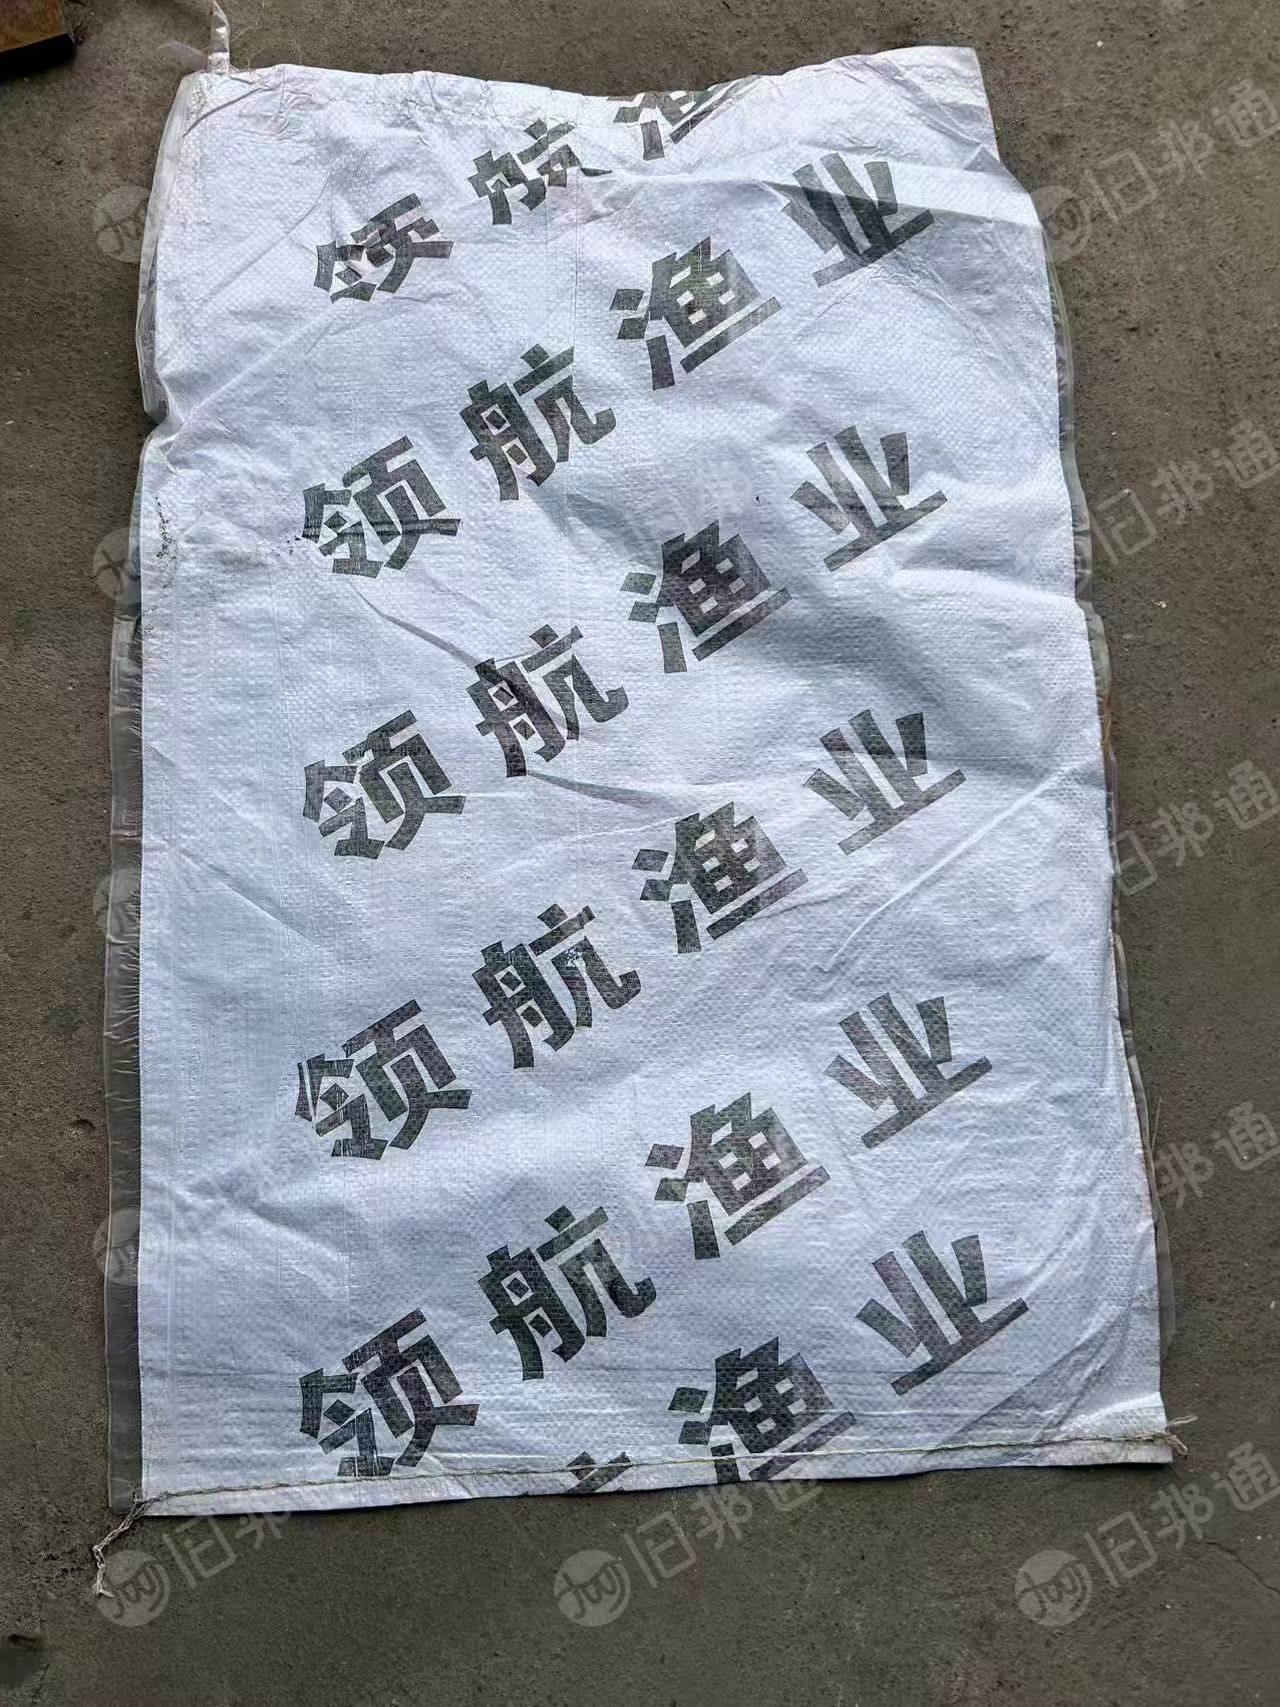 领航渔
领航渔业
领航渔业
领航渔业
领航渔业
渔业
旧邦通
旧邦通
旧邦通
旧邦通
旧邦通
旧邦通
旧邦通